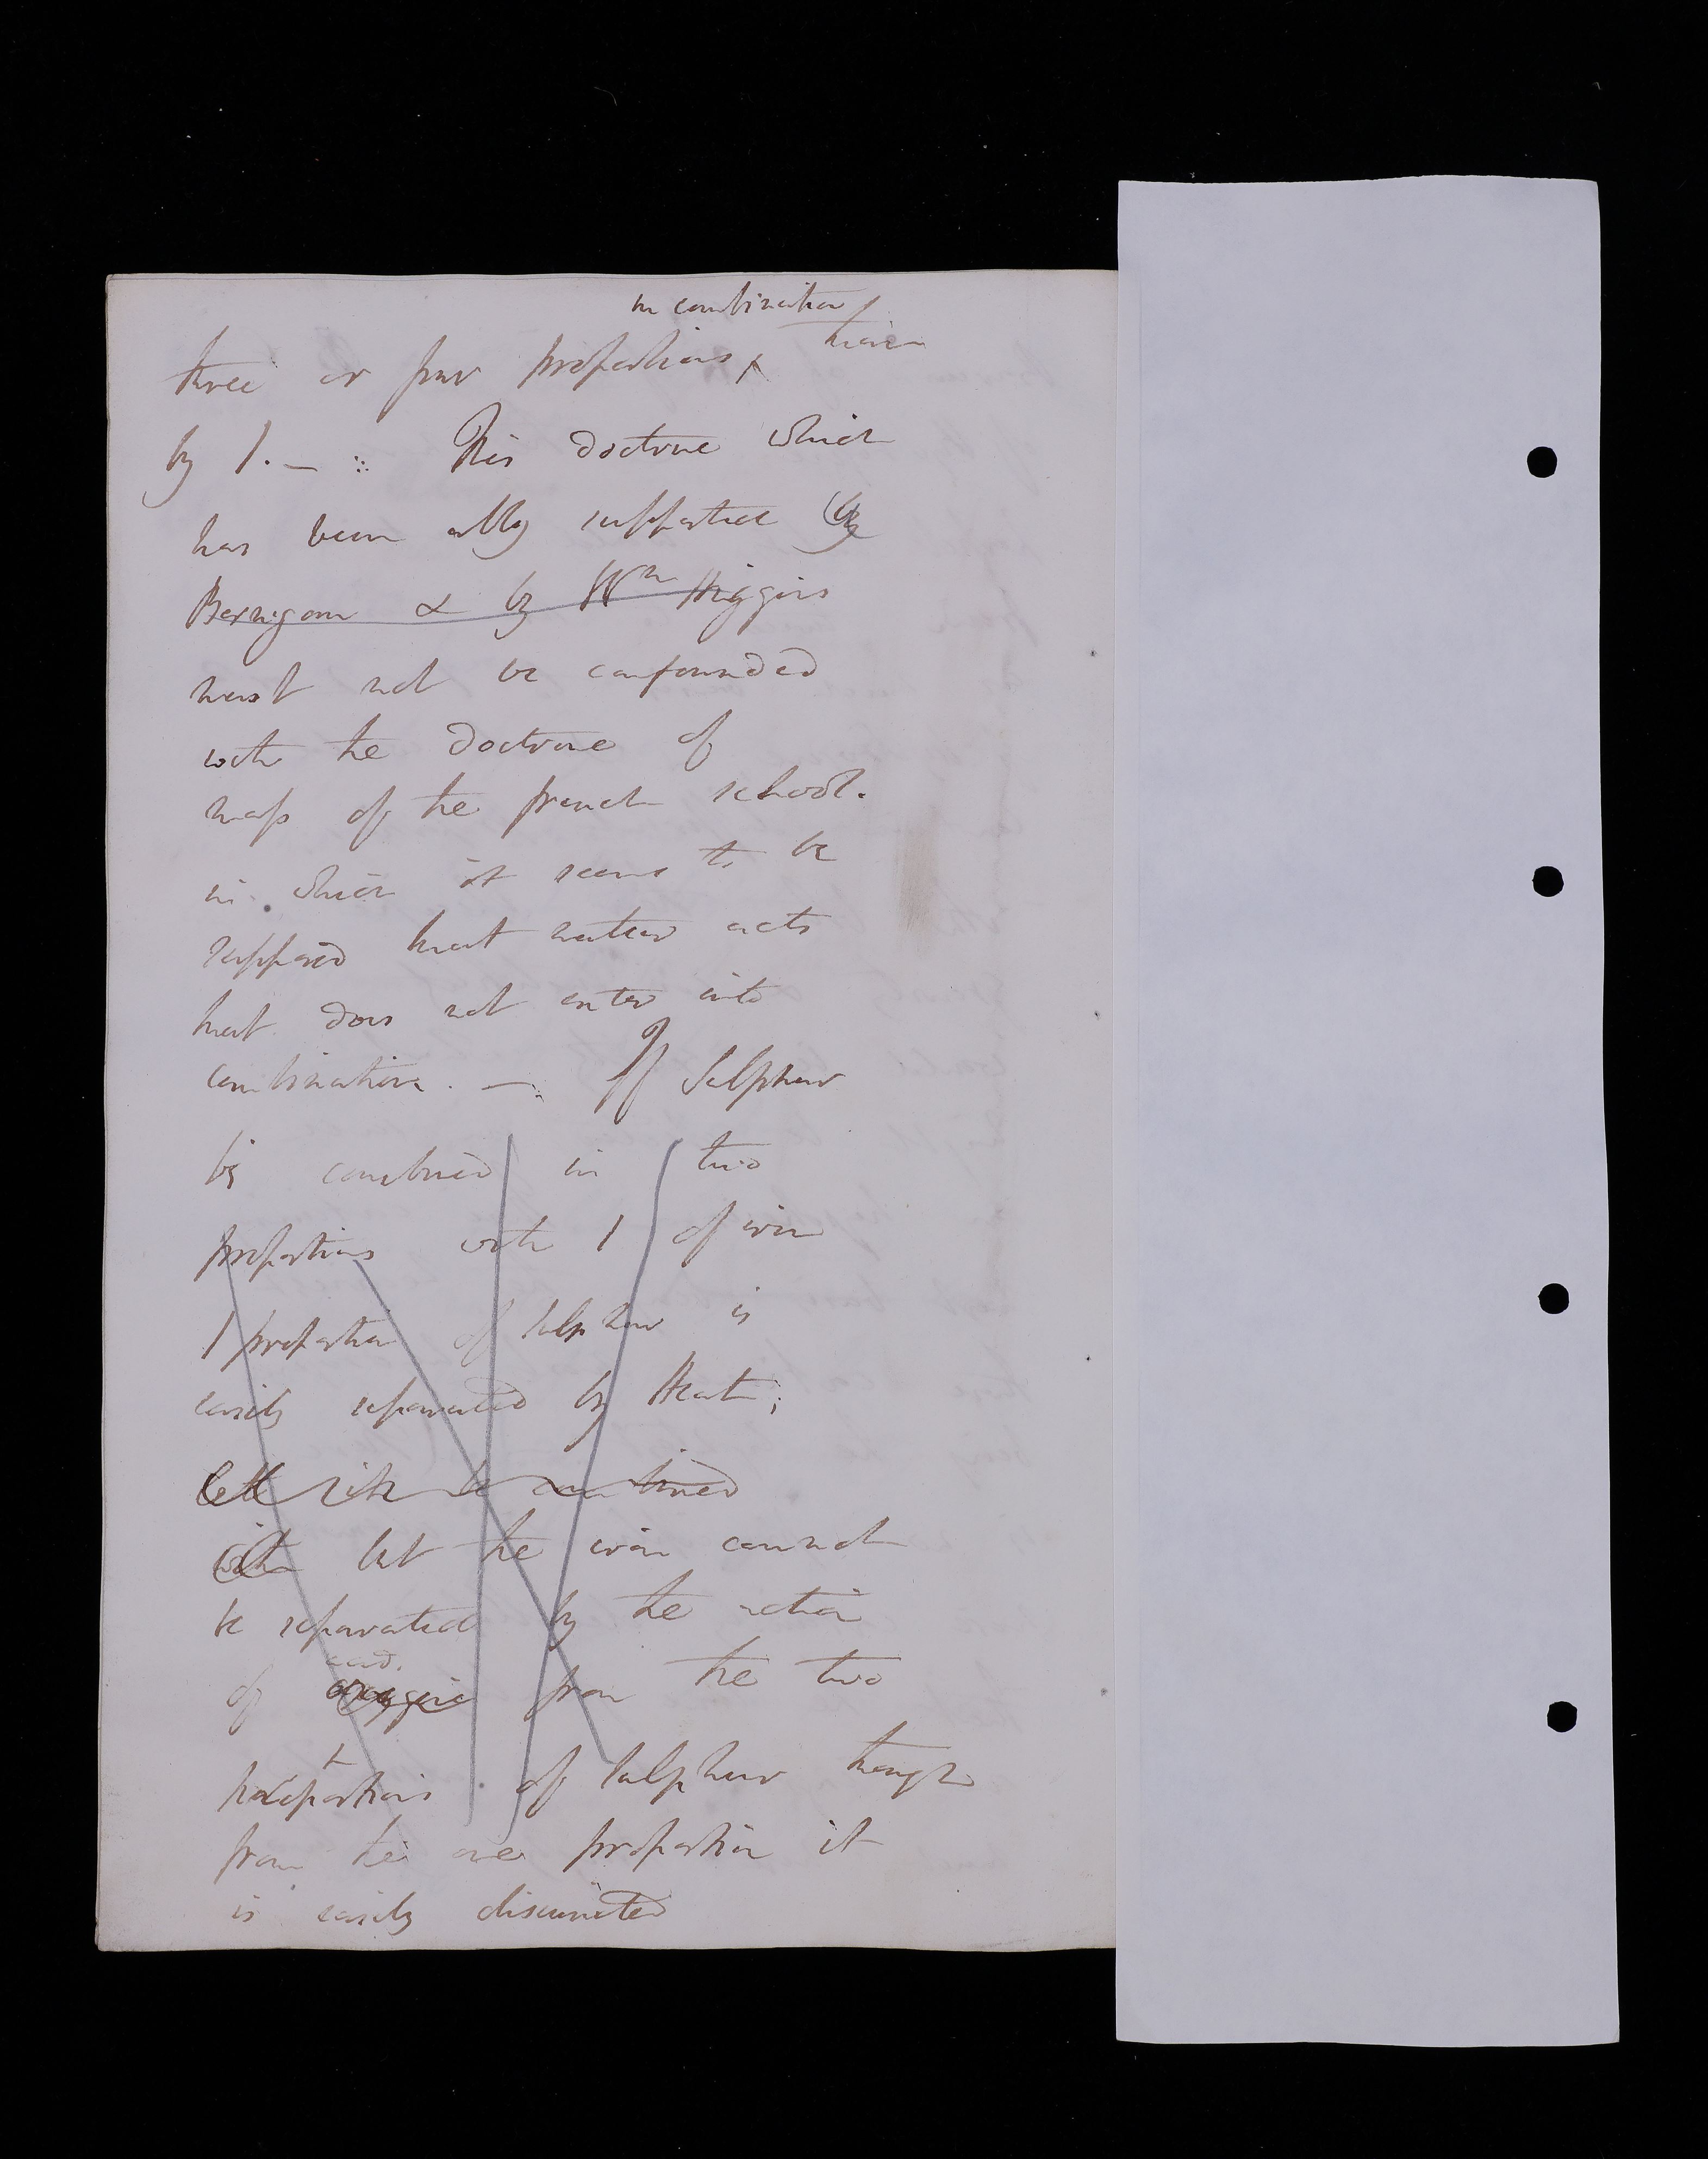 in combination
three or four proportions, than
by 1. — This doctrine which
has been ably supported by
Bergman & by Wm Higgins
must not be confounded
with the doctrine of
mass of the french school.
in which it seems to be
supposed that matter acts
that does not enter into
combination. — If Sulphur
be combined in two
proportions with 1 of iron
1 proportion of Sulphur is
easily separated by Heat;
be combined
with but the iron cannot
be separated by the action
of acid. oxygene from the two
proportions of Sulphur though
from the one proportion it
is easily disunited